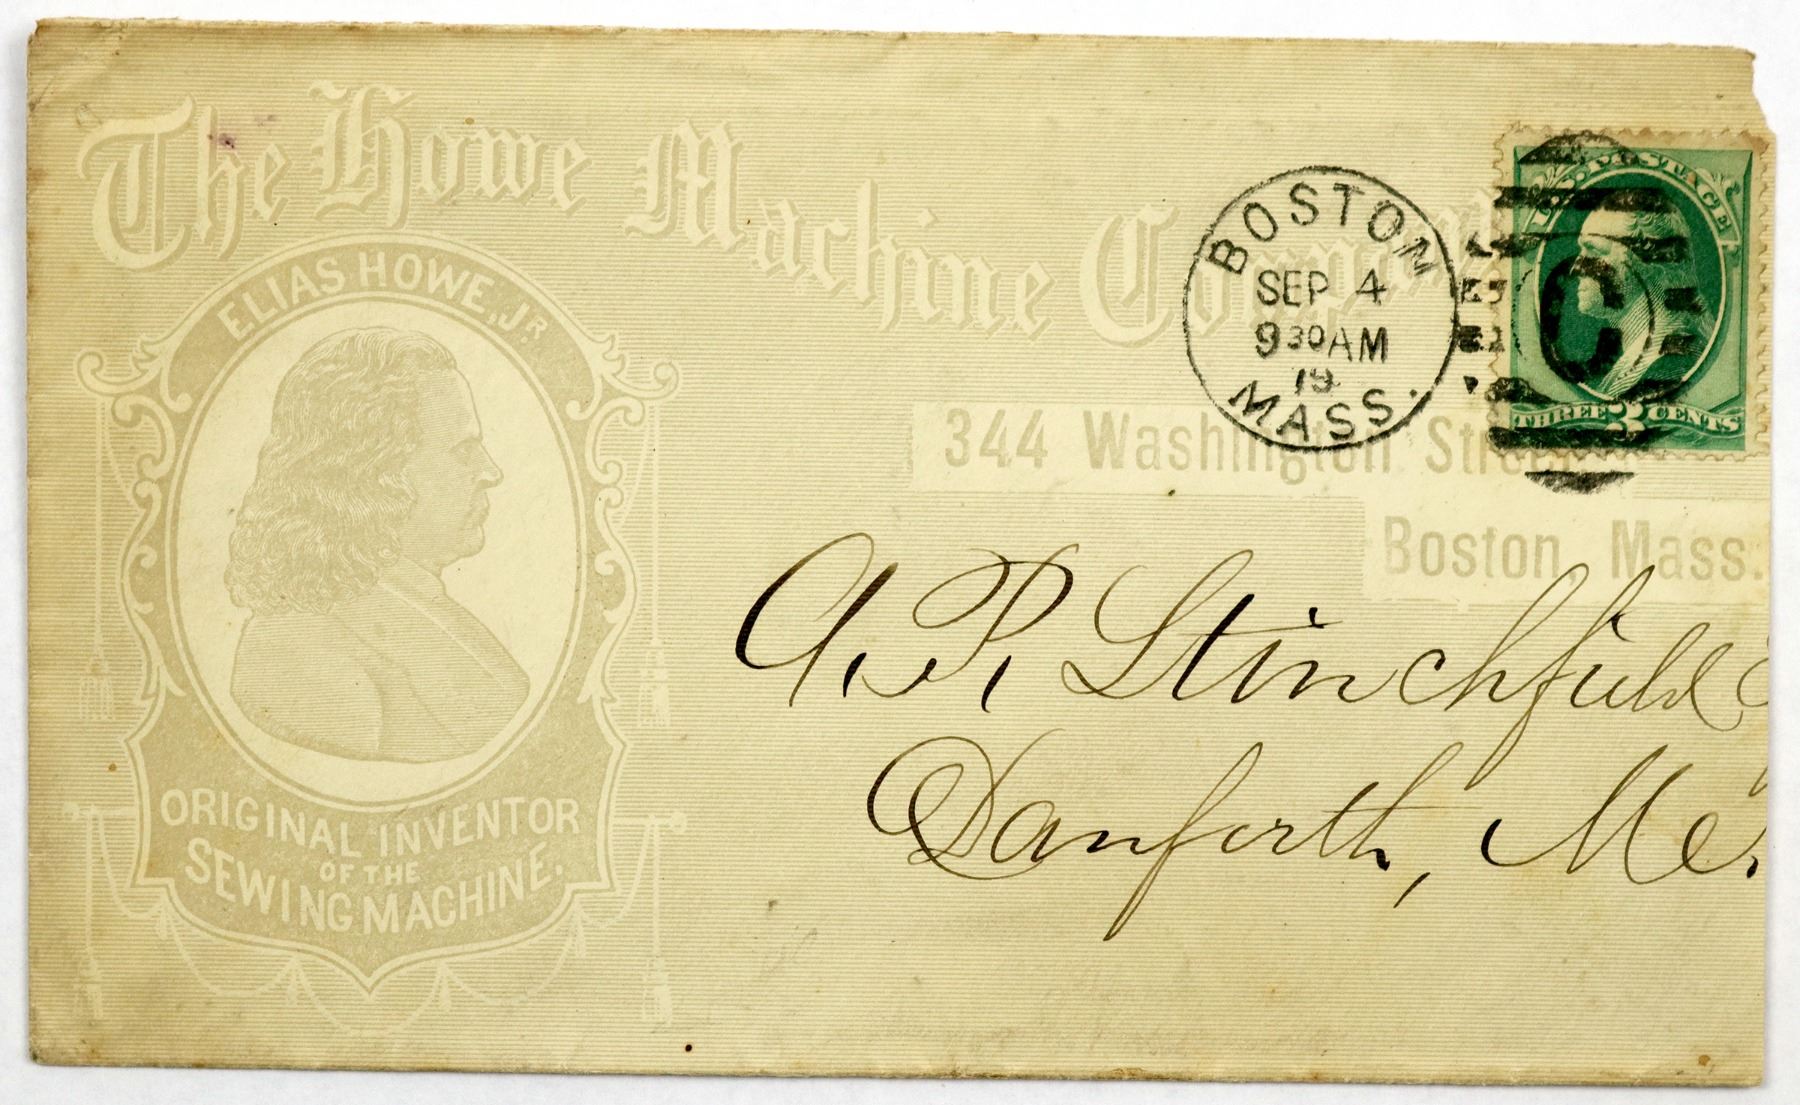 The Howe Machine Company
ELIAS HOWE, JR.
ORIGINAL INVENTOR
OF THE
SEWING MACHINE.
344 Washington Street
Boston, Mass.
BOSTON
SEP 4
9 30 AM
MASS.
U.S. POSTAGE
C
THREE 3 CENTS
A. P. Stinchfield
Danforth, Me.